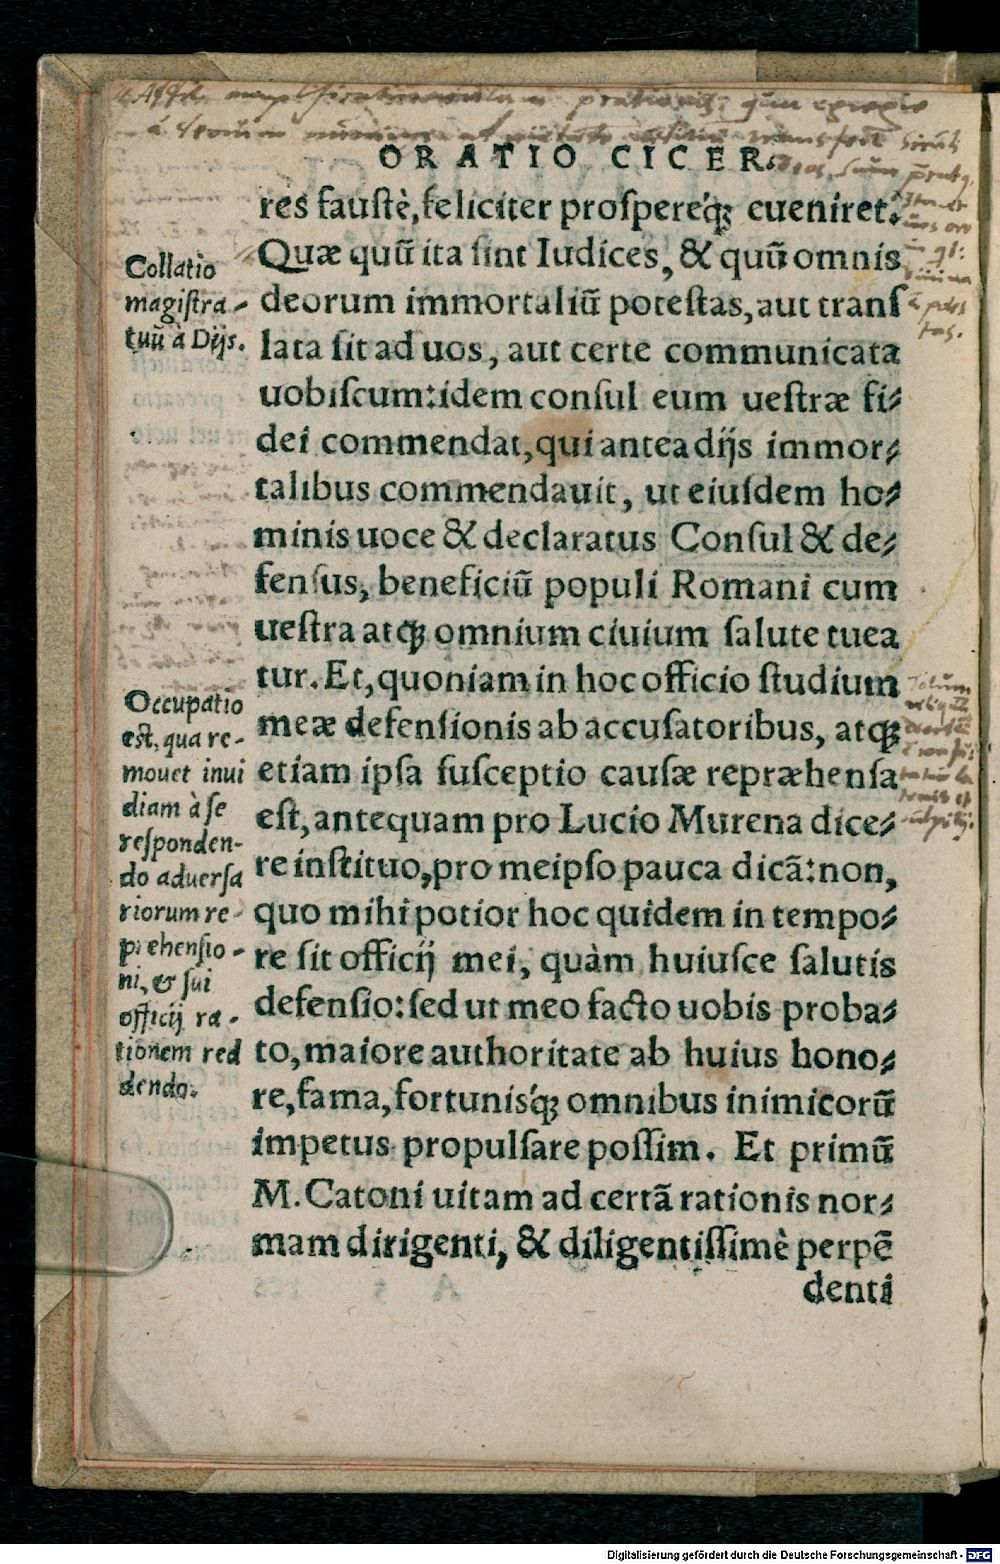 ORATIO CICER.
res faustè, feliciter prospereq́ꝫ eueniret.
Quæ quū ita sint Iudices, & quū omnis
deorum immortaliū potestas, aut trans
lata sit ad uos, aut certe communicata
uobiscum: idem consul eum uestræ fi⸗
dei commendat, qui antea dijs immor⸗
talibus commendauit, ut eiusdem ho⸗
minis uoce & declaratus Consul & de⸗
fensus, beneficiū populi Romani cum
uestra atqꝫ omnium ciuium salute tuea
tur. Et, quoniam in hoc officio studium
meæ defensionis ab accusatoribus, atqꝫ
etiam ipsa susceptio causæ repræhensa
est, antequam pro Lucio Murena dice⸗
re instituo, pro meipso pauca dicā: non,
quo mihi potior hoc quidem in tempo⸗
re sit officij mei, quàm huiusce salutis
defensio: sed ut meo facto uobis proba⸗
to, maiore authoritate ab huius hono⸗
re, fama, fortunisq́ꝫ omnibus inimicorū
impetus propulsare possim. Et primū
M. Catoni uitam ad certā rationis nor⸗
mam dirigenti, & diligentissimè perpē
denti
Collatio
magistra-
tuū à Dijs.
Occupatio
est, qua re-
mouet inui
diam à se
responden-
do aduersa
riorum re-
prehensio-
ni, & sui
officij ra-
tionem red
dendo.
Digitalisierung gefördert durch die Deutsche Forschungsgemeinschaft - DFG